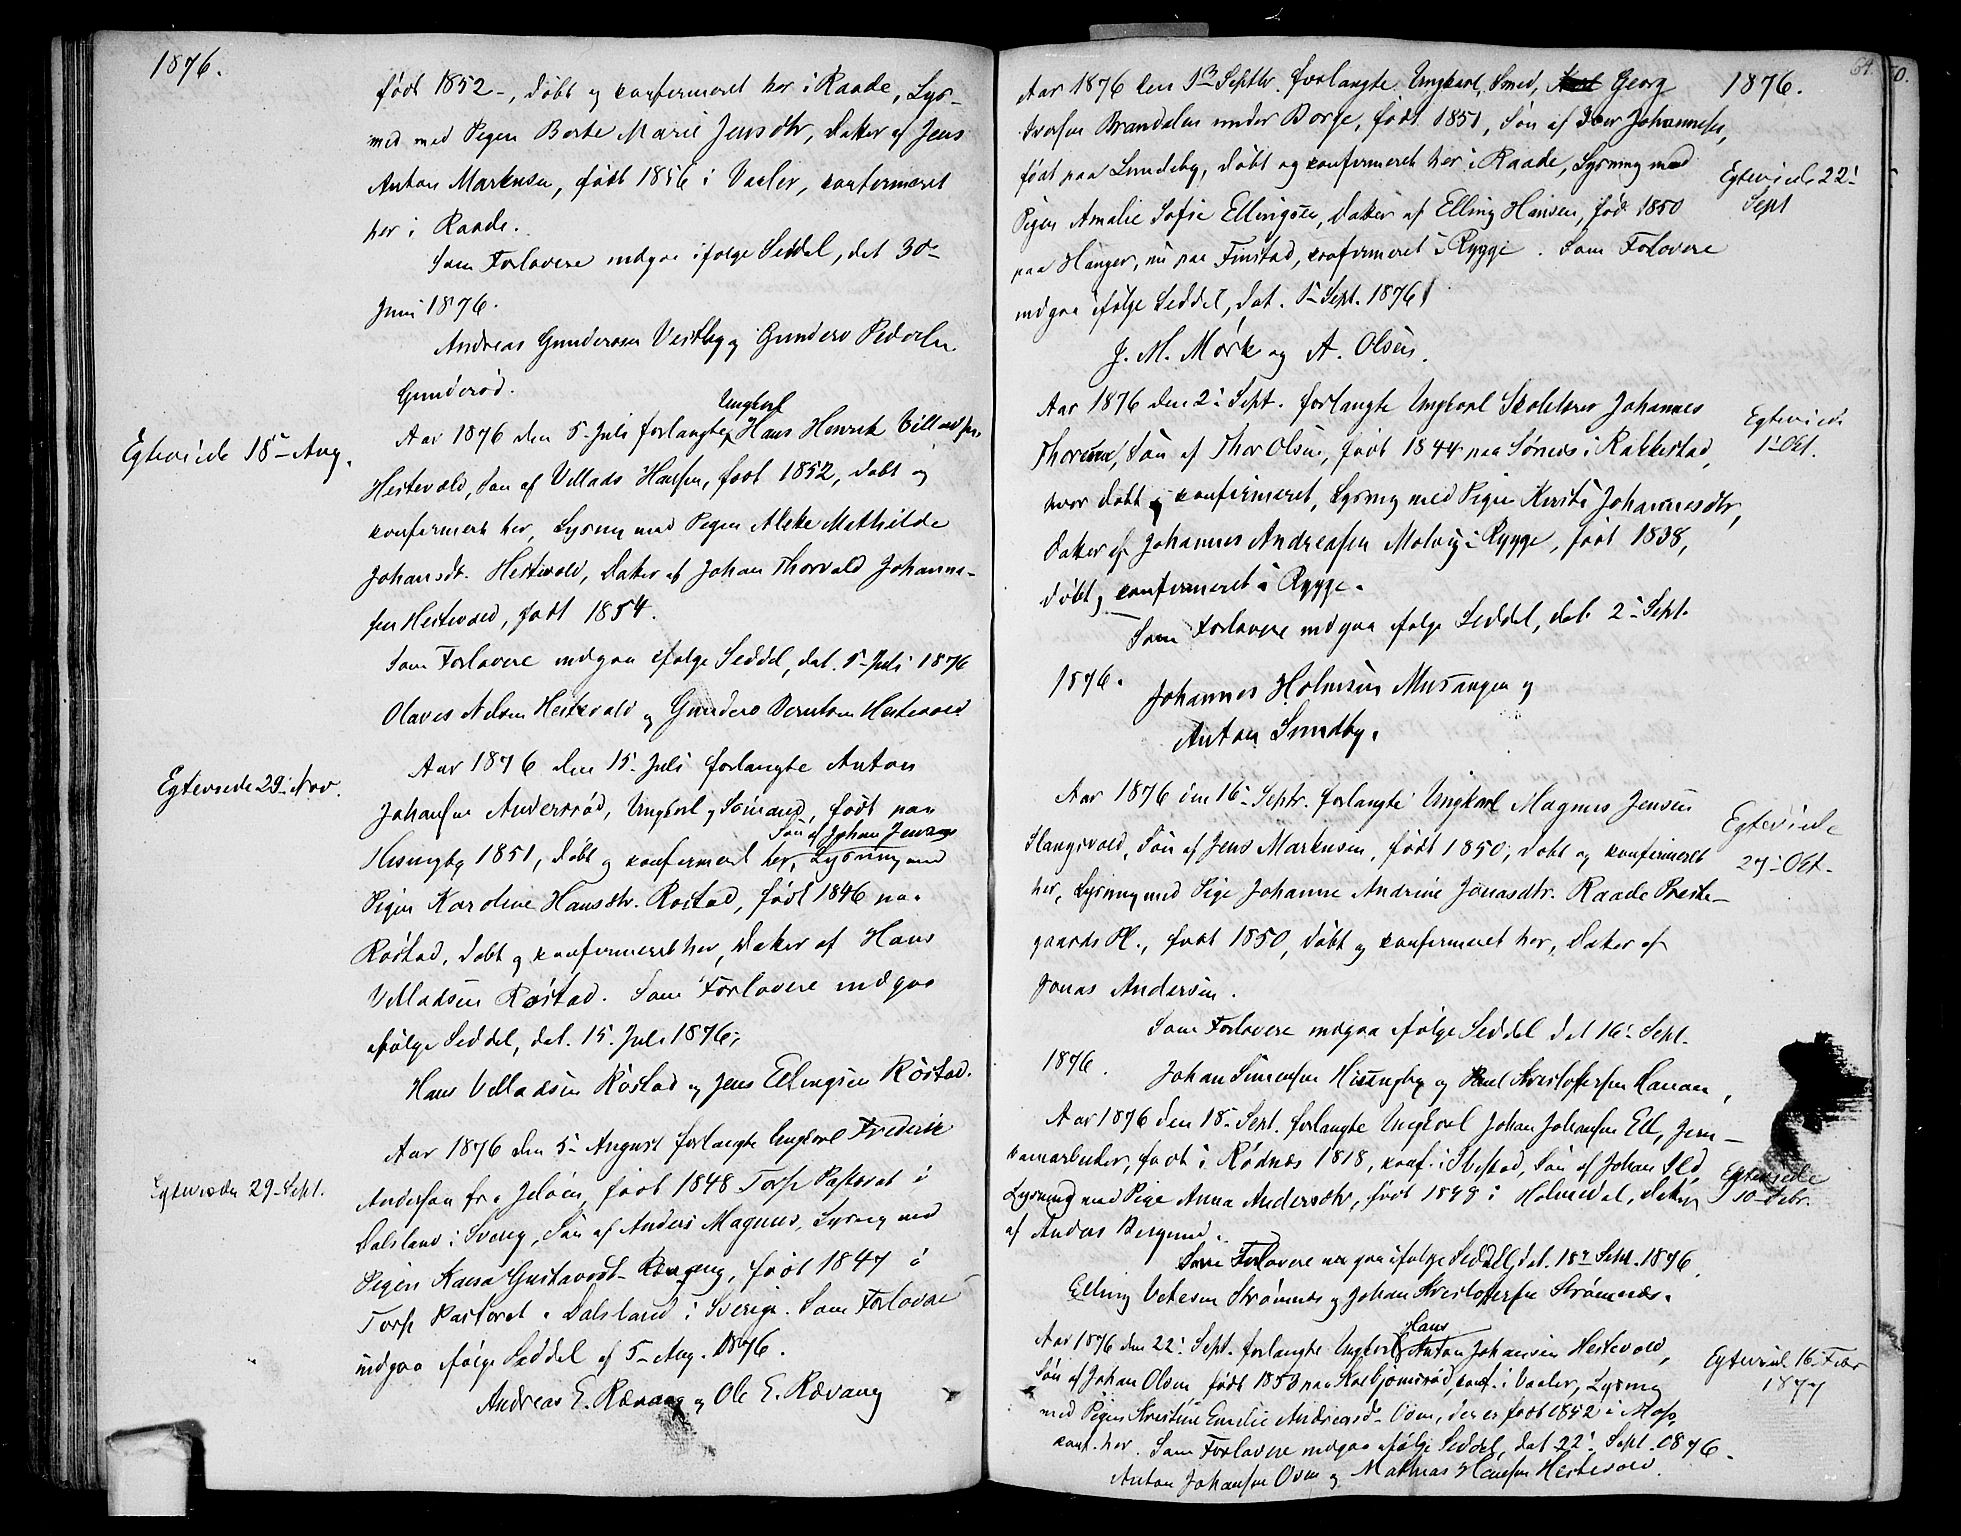 1876.
født 1852-, døbt og confirmeret her i Raade, Lys-
med Pigen Berte Marie Jensdtr, Datter af Jens
Anton Markusen, født 1856 i Vaaler, confirmeret
her i Raade.
Som Forlovere indgaa ifølge Seddel, dat 30-
Juni 1876.
Andreas Gundersen Vestby og Gunders Pedersen
Gunderød.
Ungkarl
Aar 1876 den 5. Juli forlangte Hans Henrik Villadsen
Egteviede 18- Aug.
Hestevold, Søn af Villads Hansen, født 1852, døbt og
confirmeret her, Lysning med Pigen Mathilde
Johansdt. Hestevold, Datter af Johan Thorvald Johanne-
sen Hestevold, født 1854.
Som Forlovere indgaa ifølge Seddel, dat. 5- Juli 1876
Olaves Nilsen Hestevold og Gunders Berntsen Hestevold
Aar 1876 den 15. Juli forlangte Anton
Egteviede 29- Nov.
Johansen Andersrød, Ungkarl og Sømand, født paa
Søn af Johan Jensen
Hesnegby 1851, døbt og confirmeret her, Lysning med
Pigen Karoline Hansdtr. Røstad, født 1846 paa
Røstad, døbt og confirmeret her, Datter af Hans
Villadsen Røstad. Som Forlovere indgaa
ifølge Seddel, dat. 15. Juli 1876;
Hans Villadsen Røstad og Jens Ellingsen Røstad.
Aar 1876 den 5- August forlangte Ungkarl Frederik
Egteviede 29- Sept.
Andersson fra Jeløen, født 1848 Torp Pastorat i
Dalsland i Sverig, Søn af Anders Magnus, Lysning med
Pigen Kaisa Gustavsdt- Rævang, født 1847 i
Torp Pastorat i Dalsland i Sverige. Som Forlovere
indgaa ifølge Seddel af 5- Aug. 1876.
Andreas E. Rævang og Ole E. Rævang
1876.
Aar 1876 den 1ste Septbr. forlangte Ungkarl, Smed, Georg
Iversen Brandalen under Borge, født 1851, Søn af Iver Johannesen,
født paa Lundeby, døbt og confirmeret her i Raade, Lysning med
Egteviede 22-
Sept
Pigen Amalie Sofie Ellingsen, Datter af Elling Hansen, fød 1850
paa Hanger, nu paa Finstad, confirmeret i Rygge. Som Forlovere
indgaa ifølge Seddel, dat. 1- Sept. 1876
J. M. Mørk og A. Olsen.
Aar 1876 den 2- Sept. forlangte Ungkarl Skolelærer Johannes
Egteviede
1- Okt.
Thoresen, Søn af Thor Olsen, født 1844 paa Sørnes i Rakkestad,
hvor døbt og confirmeret, Lysning med Pigen Kirsti Johannesdtr,
Datter af Johannes Andreasen Molvig i Rygge, født 1838,
døbt og confirmeret i Rygge.
Som Forlovere indgaa ifølge Seddel, dat. 2- Sept.
1876.
Johannes Holmsen Musangen og
Anton Sundby.
Aar 1876 den 16- Septr. forlangte Ungkarl Magnus Jensen
Egteviede
27- Okt.
Slangsvold, Søn af Jens Markusen, født 1850, døbt og confirmeret
her, Lysning med Pige Johanne Andrine Jonasdtr. Raade Preste-
gaards Pl., født 1850, døbt og confirmeret her, Datter af
Jonas Andersen.
Som Forlovere indgaa ifølge Seddel dat 16- Sept.
1876.
Johan Simensen Hissingby og Paul Kristoffersen Hanan,
Aar 1876 den 18- Sept. forlangte Ungkarl Johan Johansen Eld, Jern-
banearbeider, født i Rødnæs 1818, conf. i Ibestad, Søn af Johan Eld,
Egteviede
10 Febr.
Lysning med Pige Anna Andersdtr, født 1849 i Holmedal, Datter
af Anders Bergend.
Som Forlovere indgaa ifølge Seddel, dat. 18- Sept. 1876.
Elling Strømnes og Johan Kristoffersen Strømnæs.
Hans
Aar 1876 den 22- Sept. forlangte Ungkarl Anton Johansen Hestevold,
Egteviede 16- Febr
1877
Søn af Johan Olsen født 1853 paa Kolbjørnsrød, conf. i Vaaler, Lysning
med Pigen Kristine Emelie Andreasdt- Oven, der er født 1852 i Moss,
conf. her. Som Forlovere indgaa ifølge Seddel, dat 22- Sept. 1876.
Anton Johansen Oven og Mathias Hansen Hestevold.